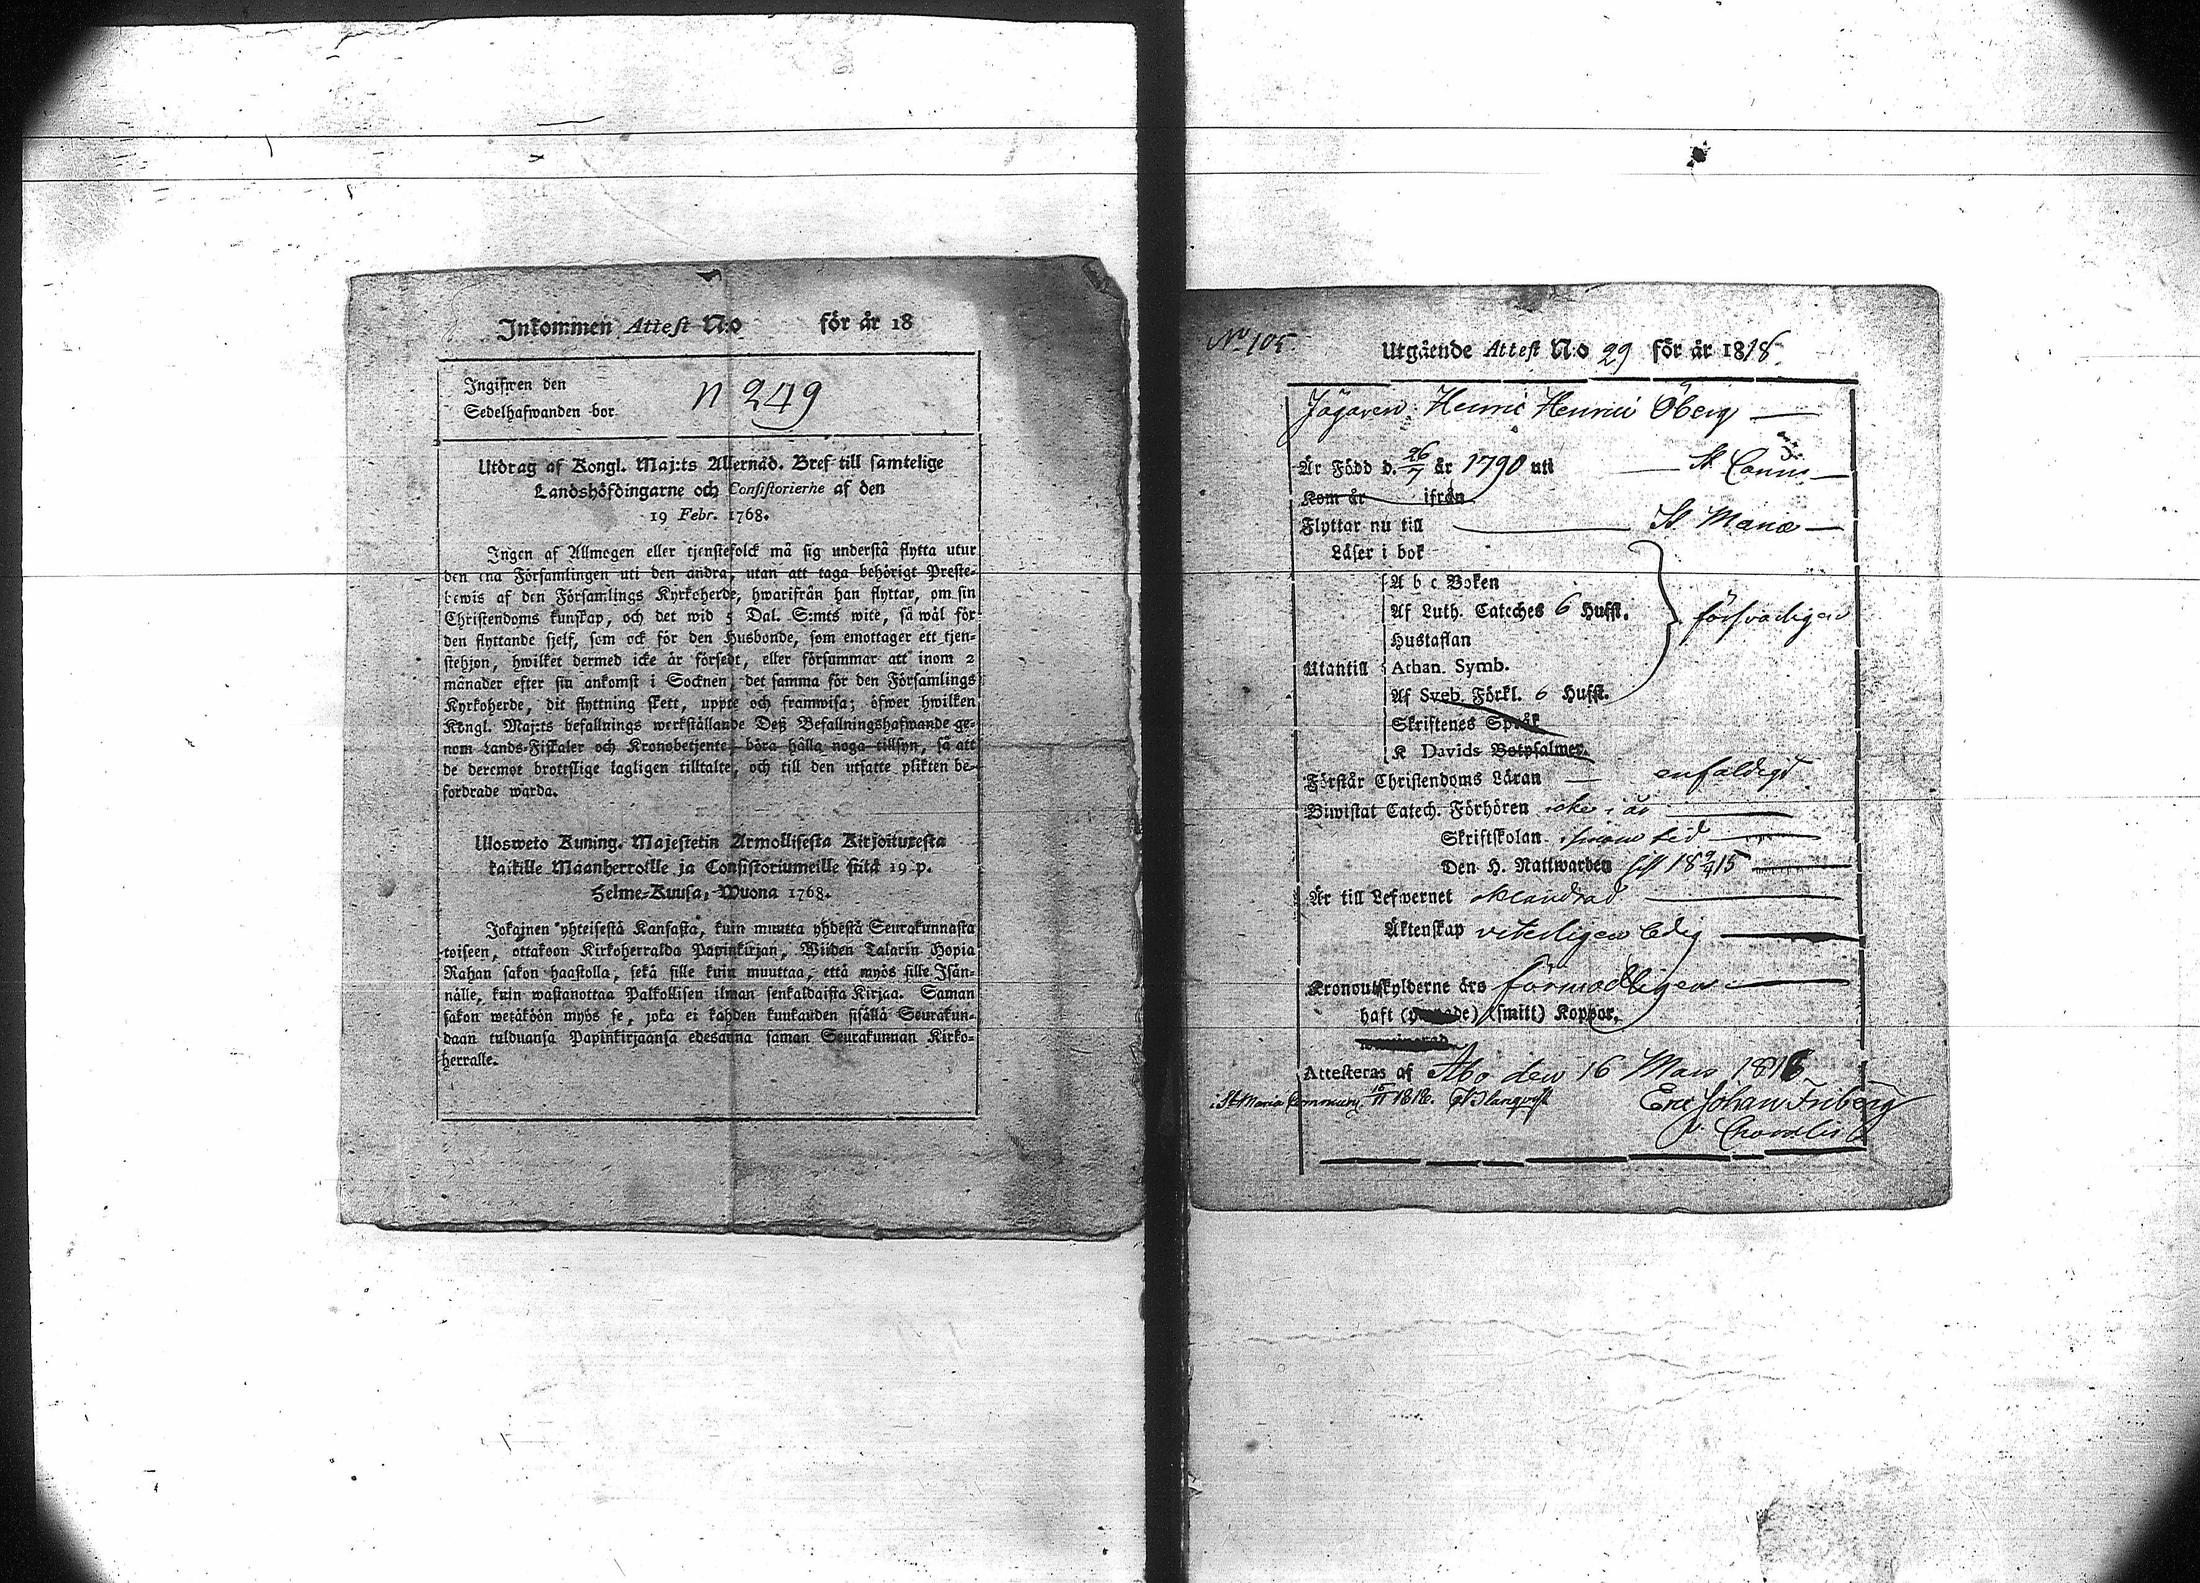 Inkommen Attest N:o för år 18
Ingifwen den
Sedelhafwanden bor
n 249
Utdrag af Kongl. Maj:ts Allernåd. Bref till samtelige
Landshöfdingarne och Consistorierne af den
19 Febr. 1768.
Ingen af Allmogen eller tjenstefolck må sig understå flytta utur
den ena Församlingen uti den andra, utan att taga behörigt Preste-
bewis af den Församlings Kyrkoherde, hwarifrån han flyttar, om sin
Christendoms kunskap, och det wid 5 Dal. S:mts wite, så wäl för
den flyttande sjelf, som ock för den Husbonde, som emottager ett tjen-
stehjon, hwilket dermed icke är försedt, eller försummar att inom 2
månader efter sin ankomst i Socknen, det samma för den Församlings
Kyrkoherde, dit flyttning skett, uppte och framwisa; öfwer hwilken
Kongl. Maj:ts befallnings werkställande Deß Befallningshafwande ge-
nom Lands-Fiskaler och Kronobetjente, böra hålla noga tillsyn, så att
de deremot brottslige lagligen tilltalte, och till den utsatte plikten be-
fordrade warda.
Ulosweto Kuning. Majestetin Armollisesta Kirjoituresta
kaikille Maanherroille ja Consistoriumeille siitä 19 p.
Helme-Kuusa, Wuona 1768.
Jokajnen yhteisestä Kansasta, kuin muutta yhdestä Seurakunnasta
toiseen, ottakoon Kirkoherralda Papinkirjan, Wiiden Talarin Hopia
Rahan sakon haastolla, sekä sille kuin muuttaa, että myös sille Isän-
nälle, kuin wastanottaa Palkollisen ilman senkaldaista Kirjaa. Saman
sakon wetäköön myös se, joka ei kahden kuukauden sisällä Seurakun-
daan tulduansa Papinkirjaansa edesanna saman Seurakunnan Kirko-
herralle.
No 105
Utgående Attest N:o 29 för år 1818.
Jägaren Henric Henrici Öberg
Är Född d. 26/7 år 1790 uti St
Kom år ifrån
Flyttar nu till St Mariæ
Läser i bok
A b c Boken
Af Luth. Cateches 6 Hufst.
Hustaflan
Utantill Athan. Symb.
Af Sveb. Förkl. 6 Hufst.
Skriftenes Språk
K Davids Botpsalmer.
försvarligen
Förstår Christendoms Läran enfaldigt
Biwistat Catech. Förhören icke i år
Skriftskolan i sinom tid
Den H. Nattwarden sist 18 9/4 15
Är till Lefwernet oklandrad
Äktenskap veterligen ledig
Kronoutskylderne års förmodligen
haft (smitt) Koppor.
Attesteras af Åbo den 16 Mars 1818
Eric Johan Friberg
St Maria 1818.